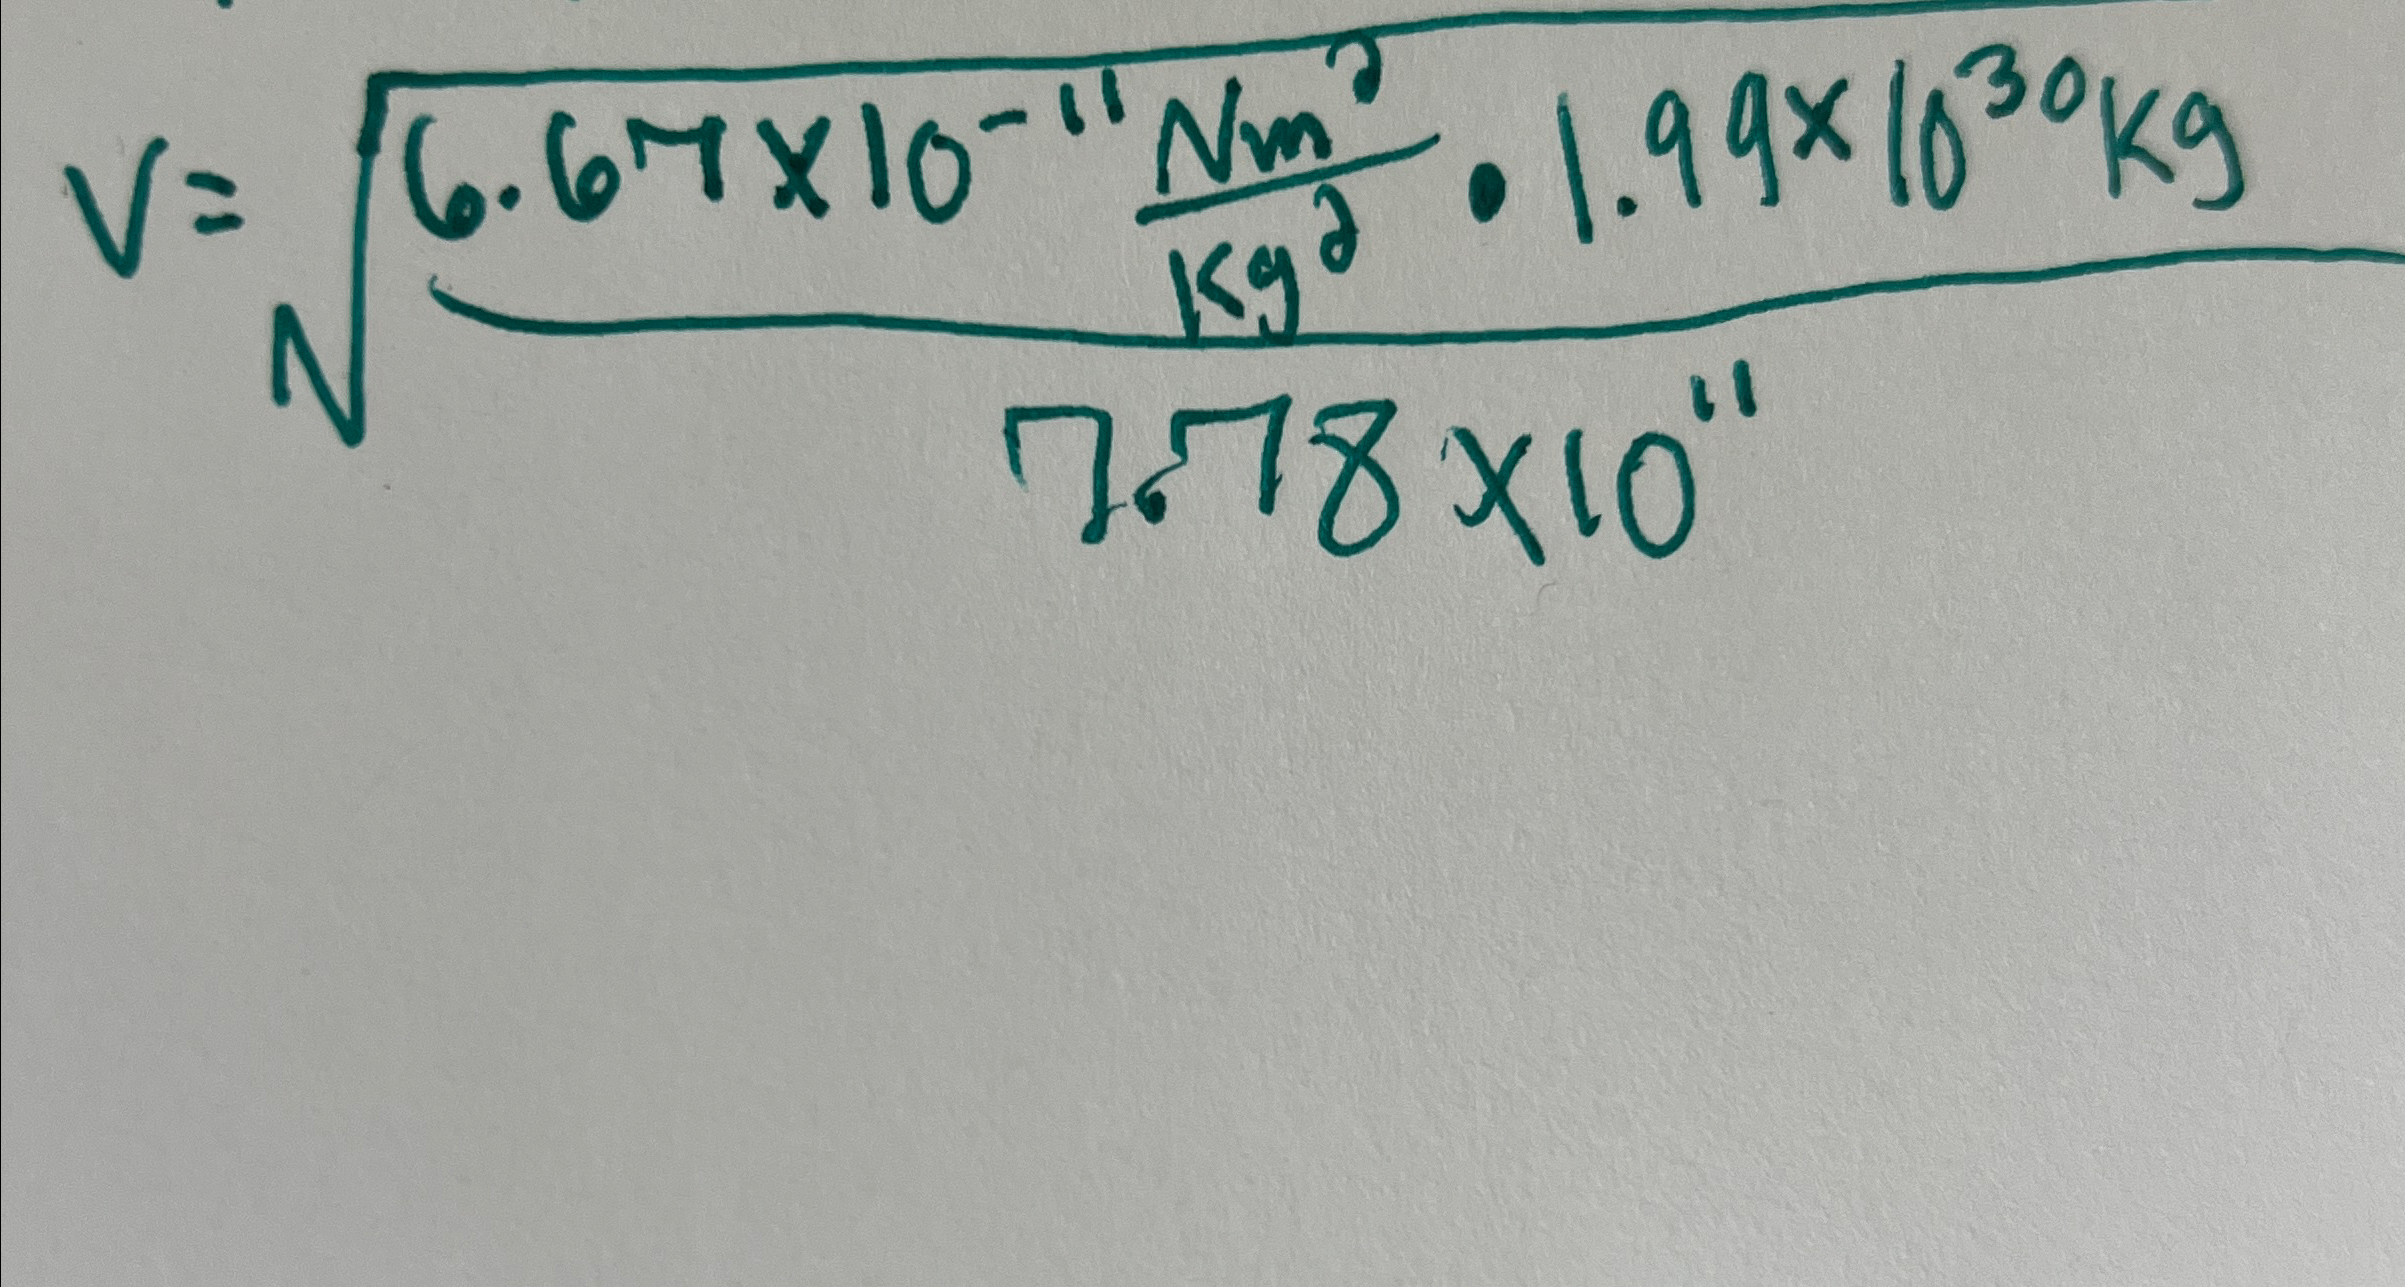 V = √(6.67 x 10⁻¹¹ Nm²/Kg² • 1.99 x 10³⁰ Kg
7.78 x 10¹¹)